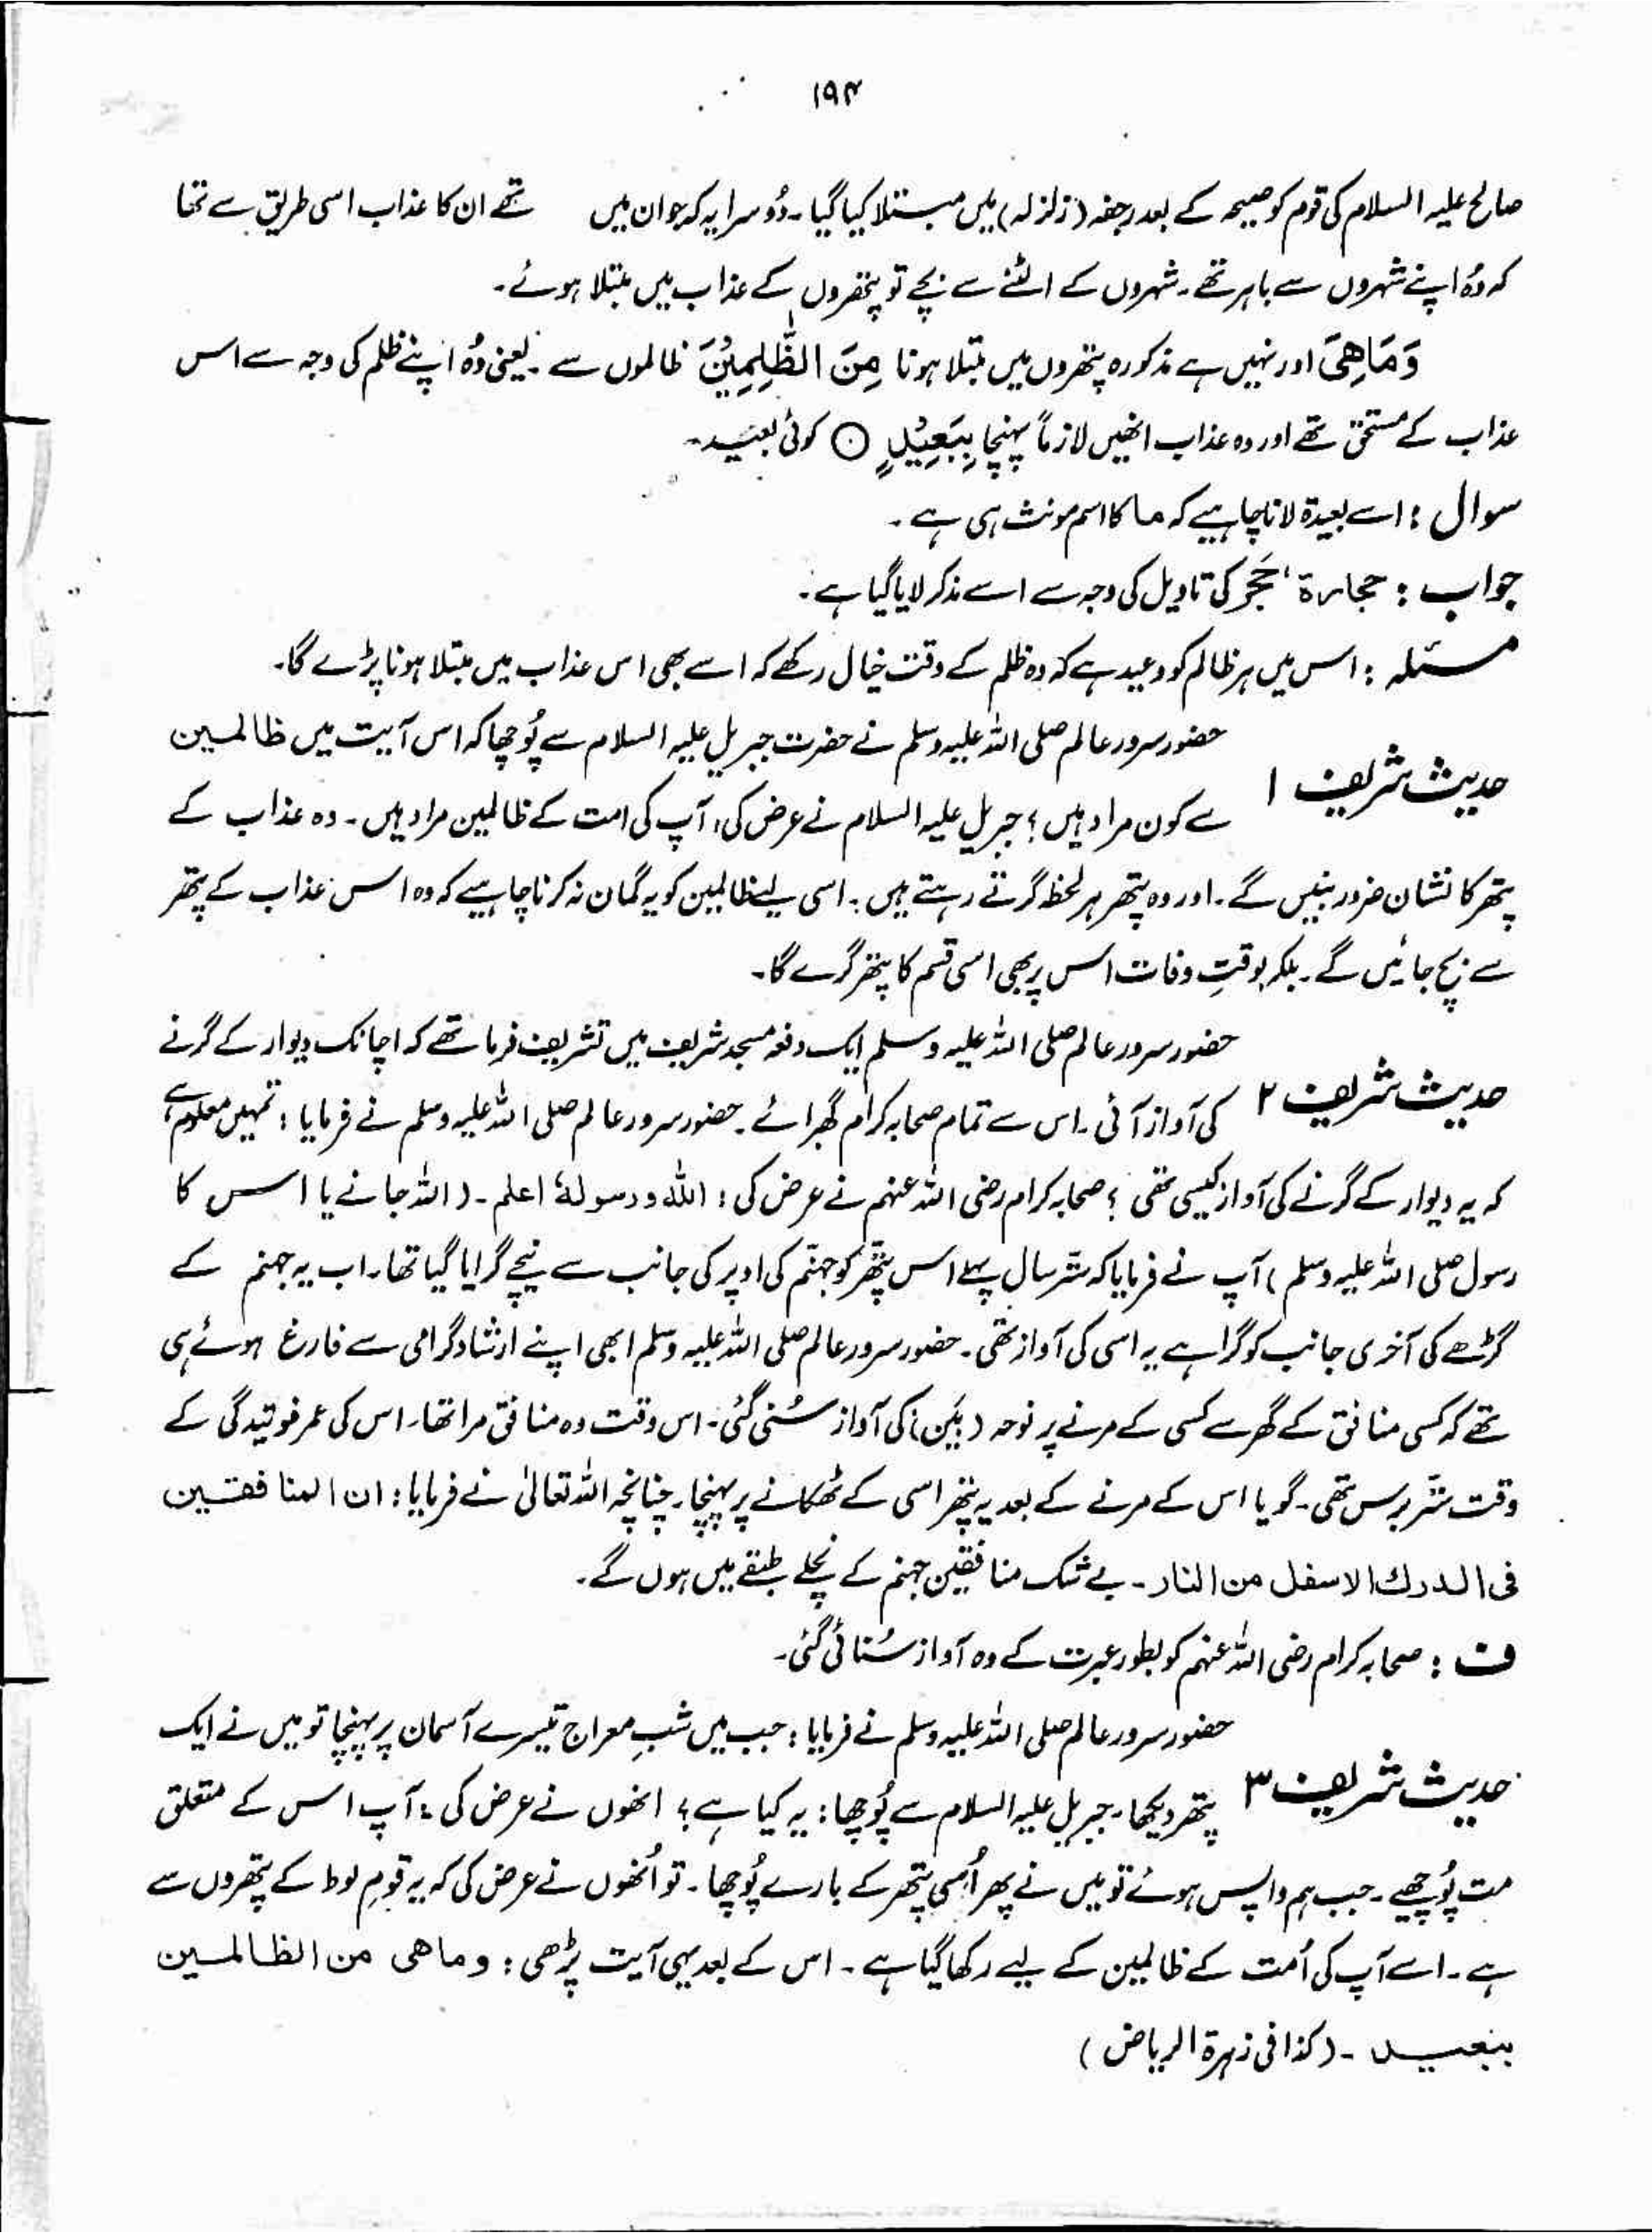 ۱۹۴
صالح علیہ السلام کی قوم کو صیحہ کے بعد رجفہ (زلزلہ) میں مبتلا کیا گیا۔ دُوسرا یہ کہ جو ان میں تھے ان کا عذاب اسی طریق سے تھا
کہ وُہ اپنے شہروں سے باہر تھے۔ شہروں کے الٹنے سے بچے تو پتھروں کے عذاب میں مبتلا ہوئے۔
وَمَاهِیَ اور نہیں ہے مذکورہ پتھروں میں مبتلا ہونا مِنَ الظّٰلِمِیْنَ ظالموں سے۔ یعنی وُہ اپنے ظلم کی وجہ سے اس
عذاب کے مستحق تھے اور وہ عذاب انھیں لازماً پہنچا بِبَعِیْدٍ ○ کوئی بعید۔
سوال : اسے بعیدۃ لانا چاہیے کہ ما کا اسم مونث ہی ہے۔
جواب : حجارۃ ، حَجَر کی تاویل کی وجہ سے اسے مذکر لایا گیا ہے۔
مسئلہ : اس میں ہر ظالم کو وعید ہے کہ وہ ظلم کے وقت خیال رکھے کہ اسے بھی اس عذاب میں مبتلا ہونا پڑے گا۔
حدیث شریف ۱ حضور سرور عالم صلی اللہ علیہ وسلم نے حضرت جبریل علیہ السلام سے پُوچھا کہ اس آیت میں ظالمین
سے کون مراد ہیں؟ جبریل علیہ السلام نے عرض کی، آپ کی امت کے ظالمین مراد ہیں۔ وہ عذاب کے
پتھر کا نشان ضرور بنیں گے۔ اور وہ پتھر ہر لحظہ گرتے رہتے ہیں۔ اسی لیے ظالمین کو یہ گمان نہ کرنا چاہیے کہ وہ اس عذاب کے پتھر
سے بچ جائیں گے۔ بلکہ بوقتِ وفات اس پر بھی اسی قسم کا پتھر گرے گا۔
حدیث شریف ۲ حضور سرور عالم صلی اللہ علیہ وسلم ایک دفعہ مسجد شریف میں تشریف فرما تھے کہ اچانک دیوار کے گرنے
کی آواز آئی۔ اس سے تمام صحابہ کرام گھبرائے۔ حضور سرور عالم صلی اللہ علیہ وسلم نے فرمایا : تمہیں معلوم ہے
کہ یہ دیوار کے گرنے کی آواز کیسی تھی؟ صحابہ کرام رضی اللہ عنہم نے عرض کی : اللہ ورسولہٗ اعلم۔ (اللہ جانے یا اس کا
رسول صلی اللہ علیہ وسلم) آپ نے فرمایا کہ ستّر سال پہلے اس پتّھر کو جہنّم کی اوپر کی جانب سے نیچے گرایا گیا تھا۔ اب یہ جہنم کے
گڑھے کی آخری جانب کو گرا ہے یہ اسی کی آواز تھی۔ حضور سرور عالم صلی اللہ علیہ وسلم ابھی اپنے ارشاد گرامی سے فارغ ہوئے ہی
تھے کہ کسی منافق کے گھر سے کسی کے مرنے پر نوحہ (بَین) کی آواز سُنی گئی۔ اس وقت وہ منافق مرا تھا۔ اس کی عمر فوتیدگی کے
وقت ستّر برس تھی۔ گویا اس کے مرنے کے بعد یہ پتھر اسی کے ٹھکانے پر پہنچا۔ چنانچہ اللہ تعالیٰ نے فرمایا : ان المنافقین
فی الدرك الاسفل من النار۔ بے شک منافقین جہنم کے نچلے طبقے میں ہوں گے۔
ف : صحابہ کرام رضی اللہ عنہم کو بطور عبرت کے وہ آواز سُنائی گئی۔
حدیث شریف ۳ حضور سرور عالم صلی اللہ علیہ وسلم نے فرمایا : جب میں شبِ معراج تیسرے آسمان پر پہنچا تو میں نے ایک
پتھر دیکھا۔ جبریل علیہ السلام سے پُوچھا : یہ کیا ہے؟ انھوں نے عرض کی : آپ اس کے متعلق
مت پُوچھیے۔ جب ہم واپس ہوئے تو میں نے پھر اُسی پتھر کے بارے پُوچھا۔ تو اُنھوں نے عرض کی کہ یہ قومِ لوط کے پتھروں سے
ہے۔ اسے آپ کی اُمت کے ظالمین کے لیے رکھا گیا ہے۔ اس کے بعد یہی آیت پڑھی : وما ھی من الظالمین
ببعید۔ (کذا فی زہرۃ الریاض)